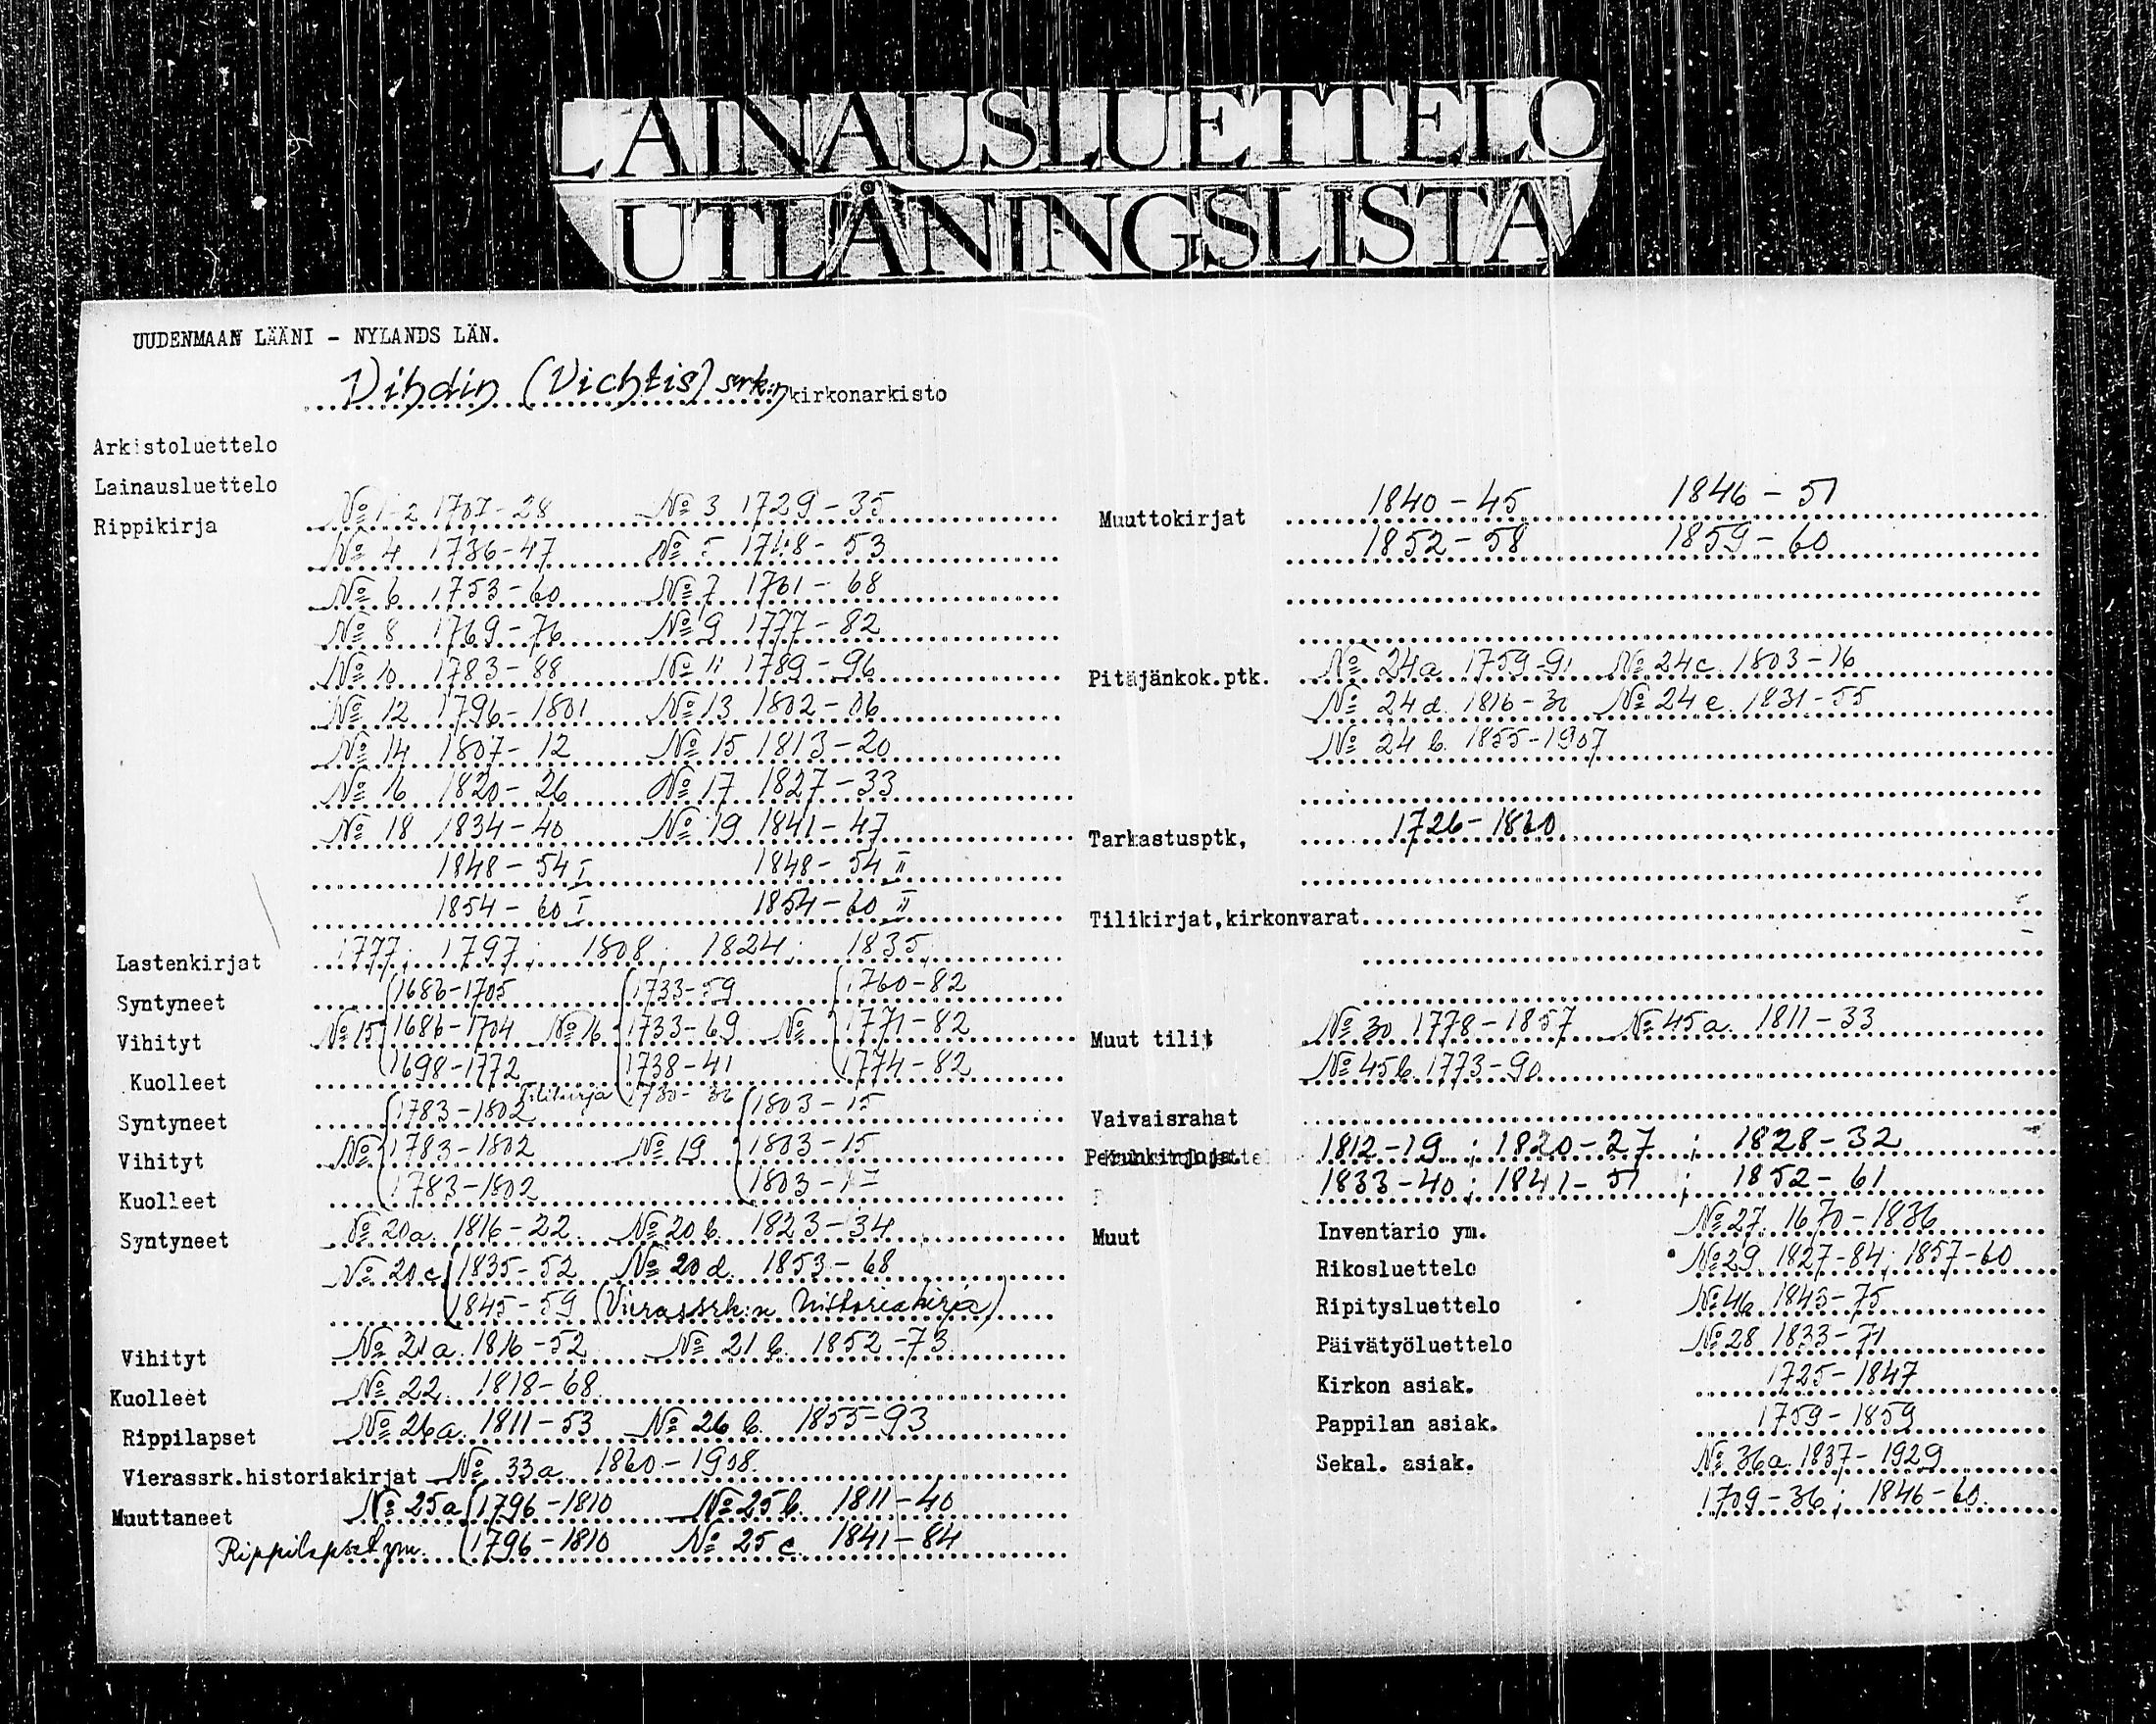 LAINAUSLUETTELO
UTLÅNINGSLISTA
UUDENMAAN LÄÄNI - NYLANDS LÄN.
Vihdin (Vichtis) srk:n kirkonarkisto
Arkistoluettelo
Lainausluettelo
Rippikirja № 1-2 1707-28 № 3 1729-35
№ 4 1736-47 № 5 1748-53
№ 6 1753-60 № 7 1761-68
№ 8 1769-76 № 9 1777-82
№ 10 1783-88 № 11 1789-96
№ 12 1796-1801 № 13 1802-06
№ 14 1807-12 № 15 1813-20
№ 16 1820-26 № 17 1827-33
№ 18 1834-40 № 19 1841-47
1848-54 I 1848-54 II
1854-60 I 1854-60 II
Lastenkirjat 1777; 1797; 1808; 1824; 1835;
Syntyneet 1686-1705 1733-59 1760-82
Vihityt № 15 1686-1704 № 16 1733-69 № 1771-82
Kuolleet 1698-1772 1738-41 1774-82
Tilikirja 1730-36
Syntyneet 1783-1802 1803-15
Vihityt № 1783-1802 № 19 1803-15
Kuolleet 1783-1802 1803-
Syntyneet № 20a. 1816-22 № 20 b. 1823-34
№ 20 c. 1835-52 № 20 d. 1853-68
1845-59 (Vierassrk:n historiakirja)
Vihityt № 21 a. 1816-52 № 21 b. 1852-73
Kuolleet № 22. 1818-68
Rippilapset № 26a. 1811-53 № 26 b. 1855-93
Vierassrk.historiakirjat № 33a. 1860-1908.
Muuttaneet № 25a 1796-1810 № 25 b. 1811-40
Rippilapset ym. 1796-1810 № 25 c. 1841-84
Muuttokirjat 1840-45 1846-51
1852-58 1859-60
Pitäjänkok.ptk. № 24a. 1759-91 № 24c. 1803-16
№ 24 d. 1816-30 № 24 e. 1831-55
№ 24 b. 1855-1907
Tarkastusptk, 1726-1860
Tilikirjat,kirkonvarat
Muut tilit № 30 1778-1857 № 45a. 1811-33
№ 45b. 1773-90
Vaivaisrahat
Perunkirjoja 1812-19; 1820-27; 1828-32
1833-40; 1841-51; 1852-61
Muut Inventario ym. № 27. 1670-1836
Rikosluettelo № 29 1827-84; 1857-60
Ripitysluettelo № 46 1843-75
Päivätyöluettelo № 28 1833-71
Kirkon asiak. 1725-1847
Pappilan asiak. 1759-1859
Sekal. asiak. № 36a. 1837-1929
1709-36; 1846-60.